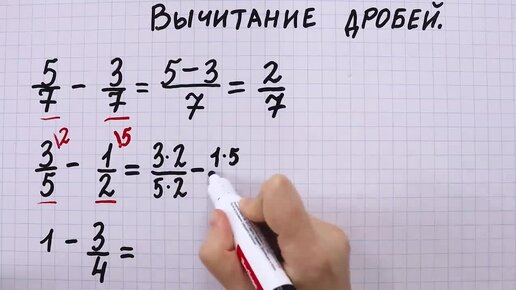 Вычитание дробей.
5/7 - 3/7 = (5-3)/7 = 2/7
3/5 \2 - 1/2 \5 = (3·2)/(5·2) - 1·5
1 - 3/4 =